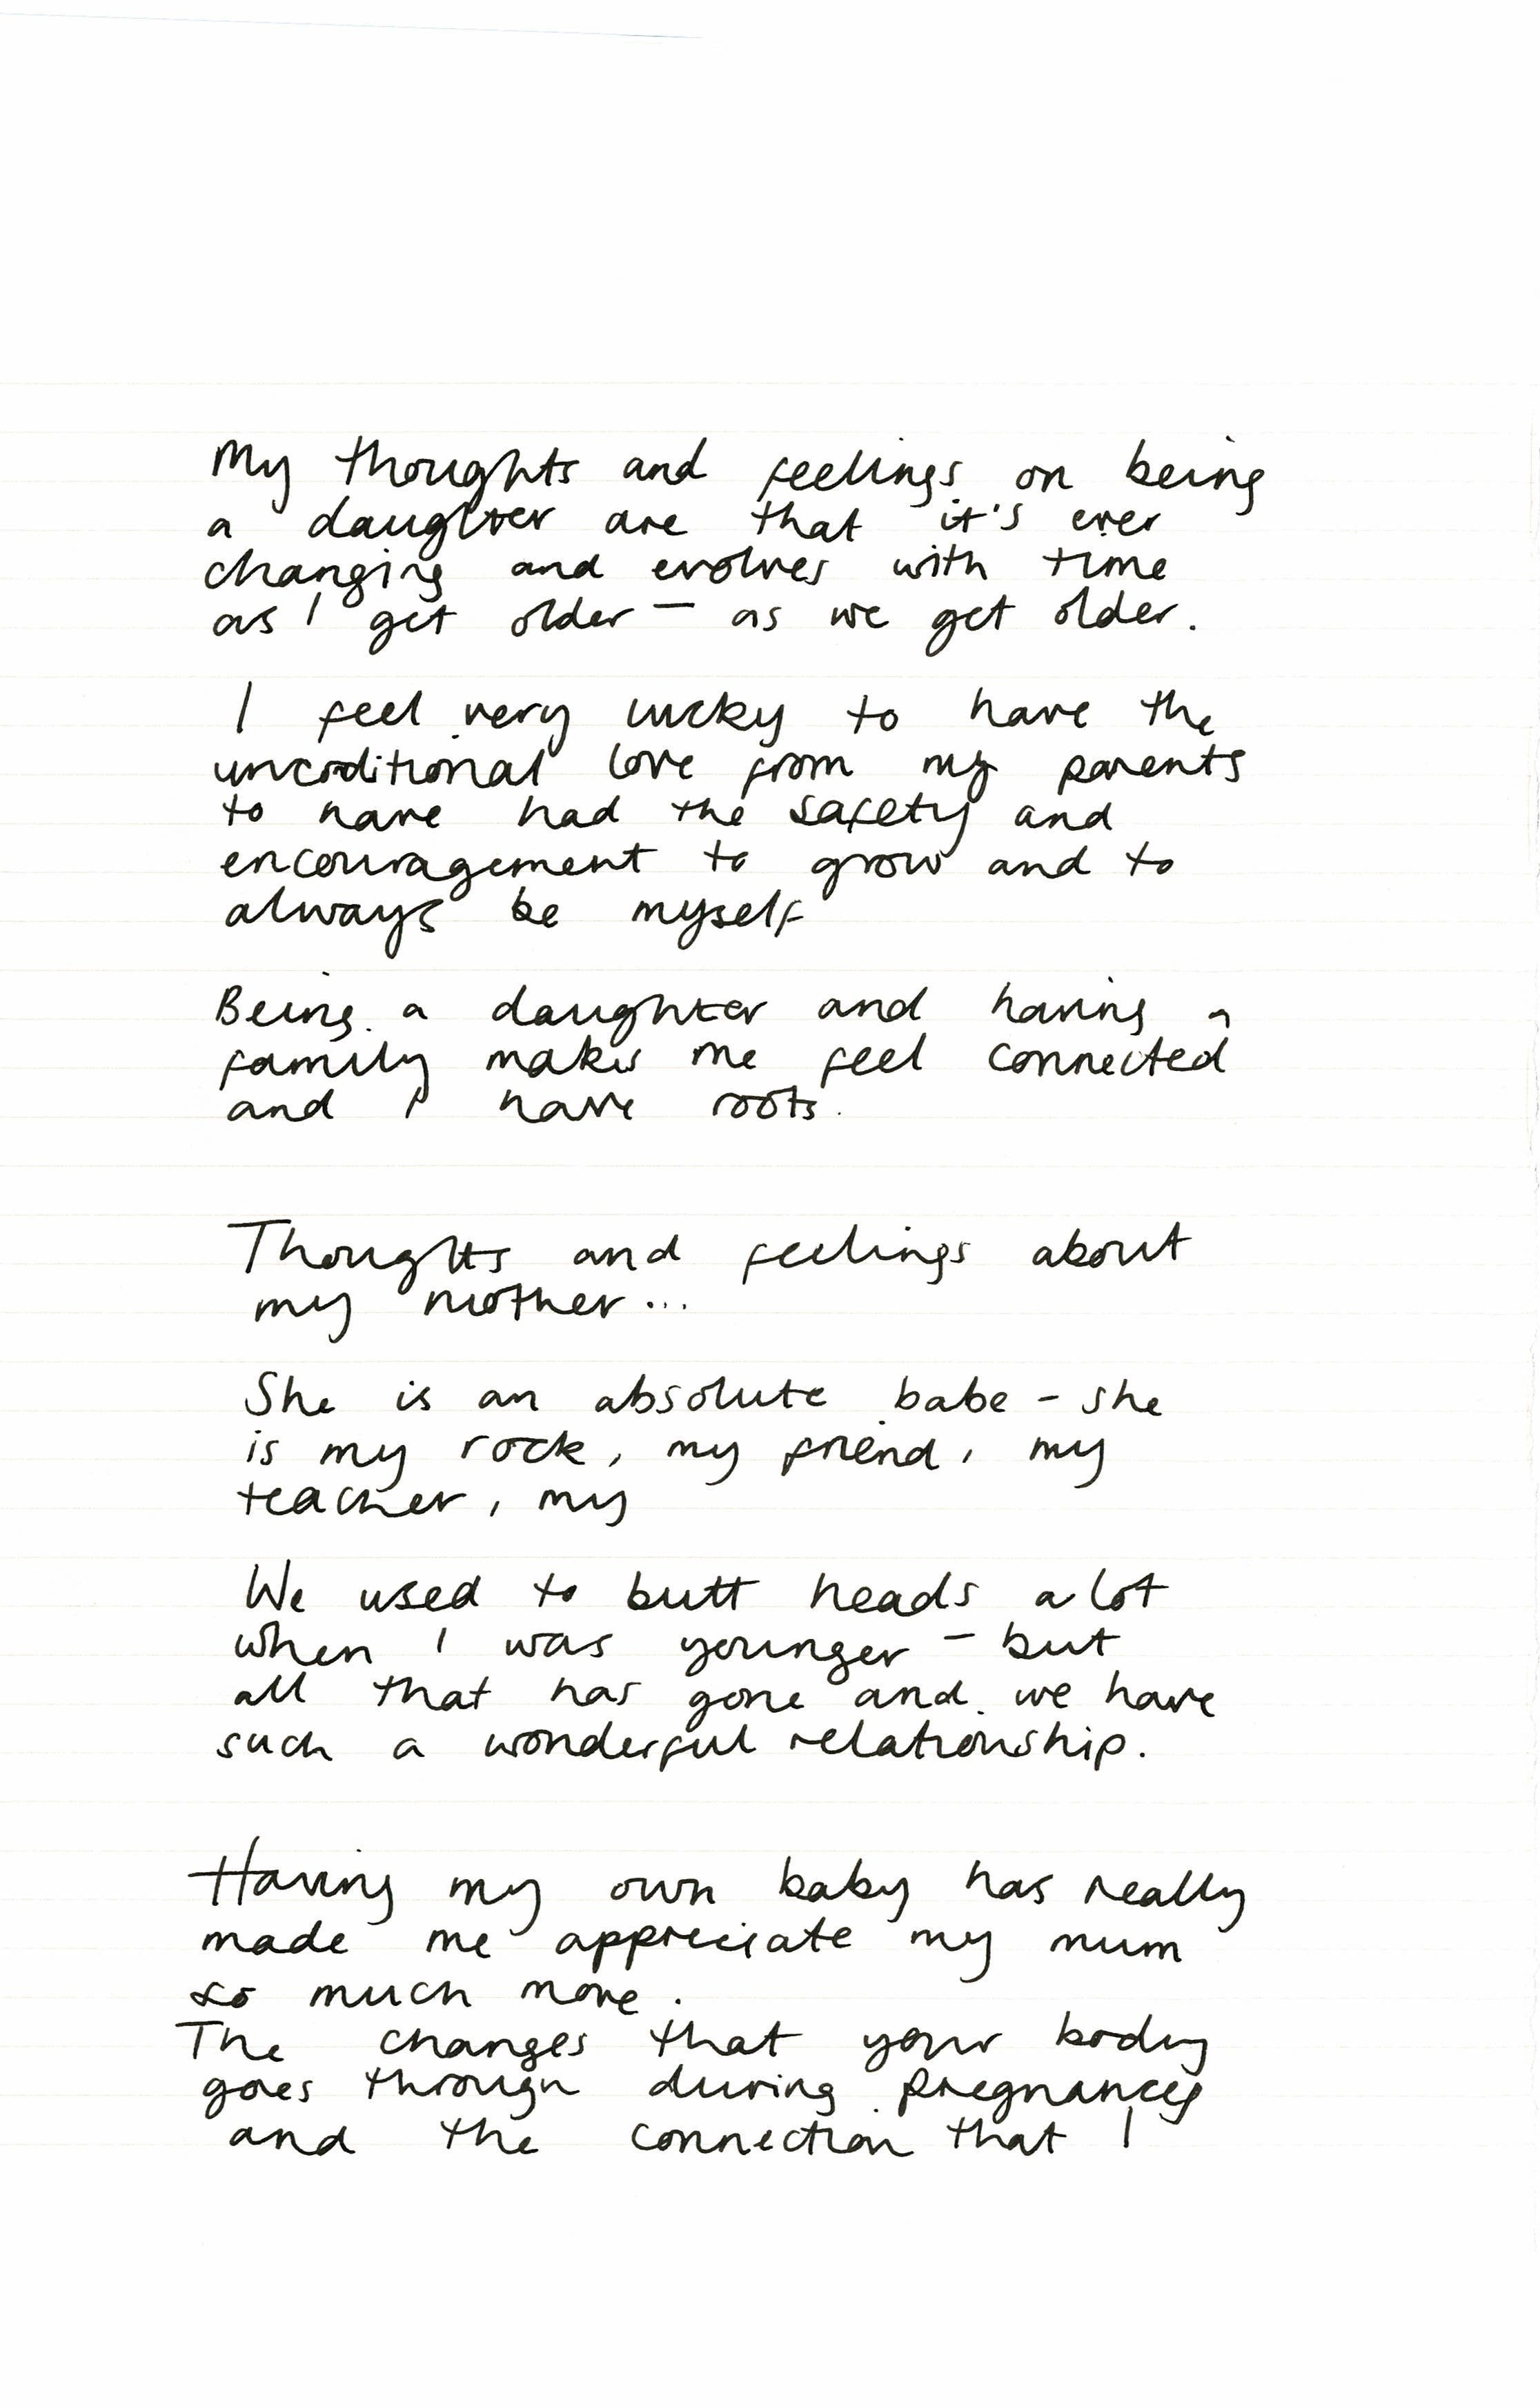 My thoughts and feelings on being
a daughter are that it's ever
changing and evolves with time
as I get older – as we get older.
I feel very lucky to have the
uncoditional love from my parents
to have had the safety and
encouragement to grow and to
always be myself
Being a daughter and having a
family makes me feel connected
and I have roots.
Thoughts and feelings about
my mother...
She is an absolute babe - she
is my rock, my friend, my
teacher, my
We used to butt heads a lot
when I was younger – but
all that has gone and we have
such a wonderful relationship.
Having my own baby has really
made me appreciate my mum
so much more.
The changes that your body
goes through during pregnancy
and the connection that I